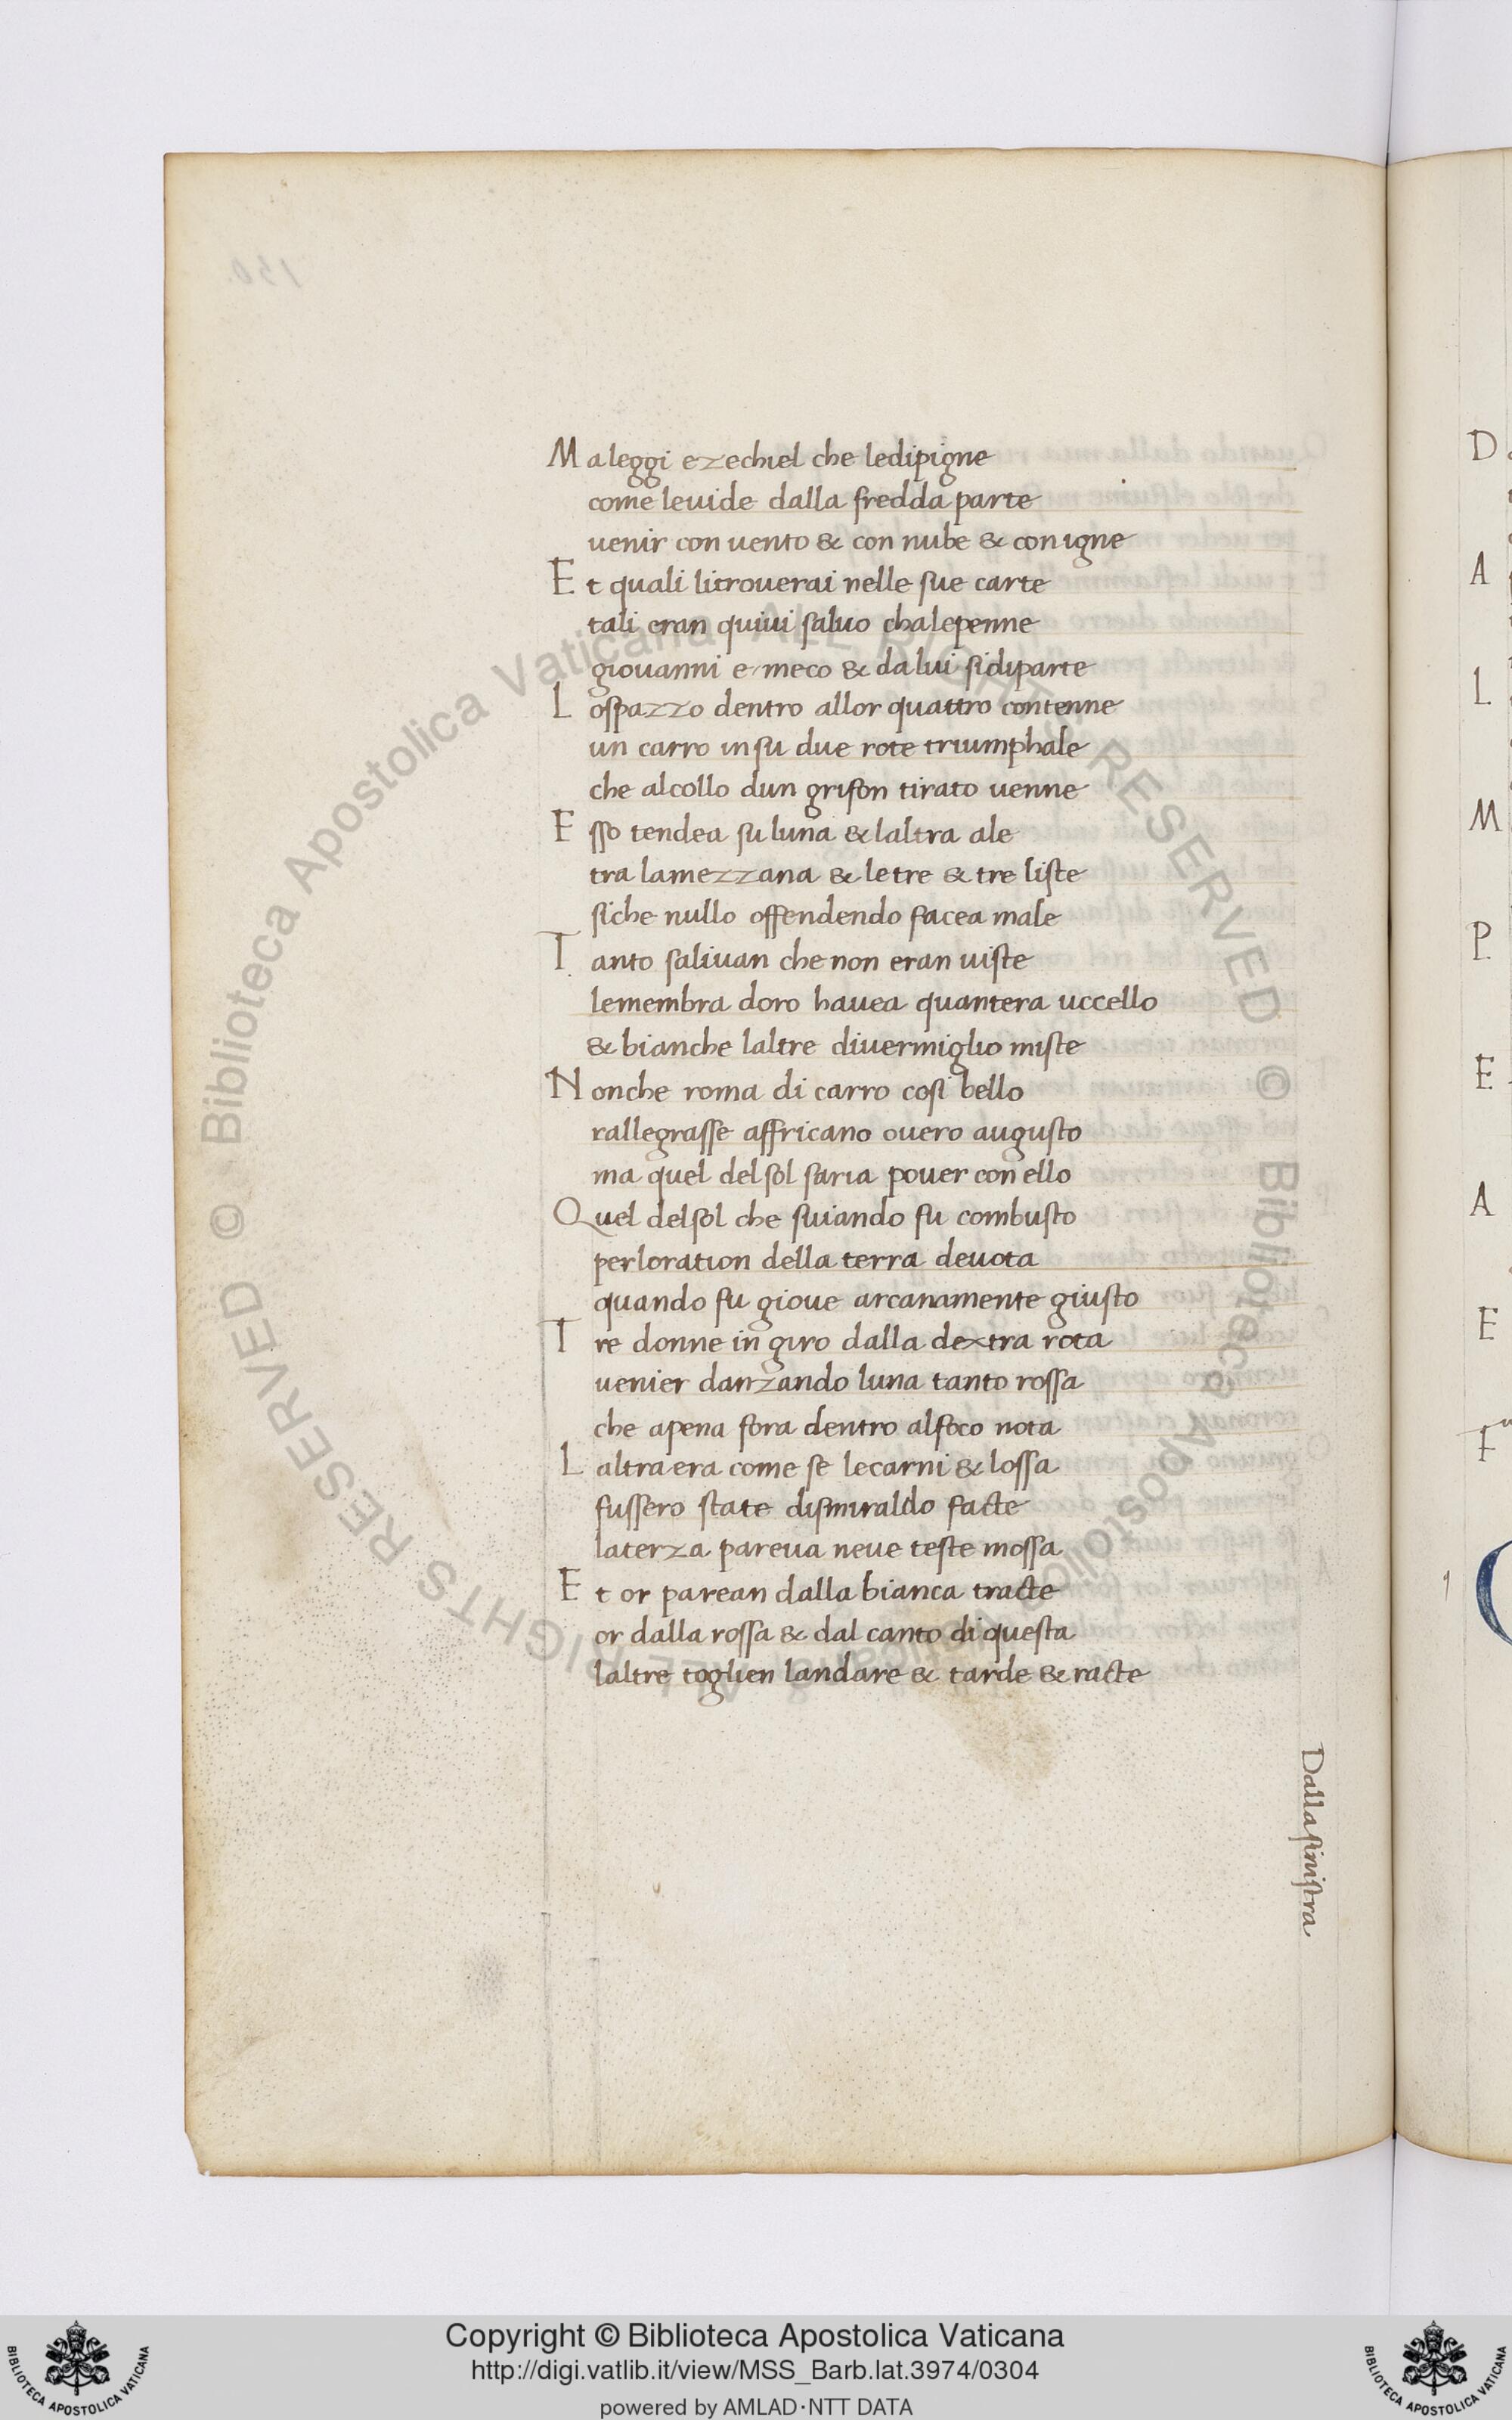 M a leggi ezechiel che ledipigne
come leuide dalla fredda parte
uenir con uento & con nube & con igne
E t quali litrouerai nelle sue carte
tali eran quiui saluo chalepenne
giouanni e meco & da lui sidiparte
L ospazzo dentro allor quattro contenne
un carro insu due rote triumphale
che alcollo dun grifon tirato uenne
E sso tendea su luna & laltra ale
tra lamezzana & letre & tre liste
siche nullo offendendo facea male
T anto saliuan che non eran uiste
lemembra doro hauea quantera uccello
& bianche laltre diuermiglio miste
N onche roma di carro cosi bello
rallegrasse affricano ouero augusto
ma quel delsol saria pouer con ello
Q uel delsol che suiando fu combusto
perloration della terra deuota
quando fu gioue arcanamente giusto
T re donne in giro dalla dextra rota
uenier danzando luna tanto rossa
che apena fora dentro alfoco nota
L altra era come se lecarni & lossa
fussero state dismiraldo facte
laterza pareua neue teste mossa
E t or parean dalla bianca tracte
or dalla rossa & dal canto di questa
laltre toglien landare & tarde & racte
Dalla sinistra
D
A
L
M
P
E
A
E
F
130.
© Biblioteca Apostolica Vaticana ALL RIGHTS RESERVED © Biblioteca Apostolica Vaticana ALL RIGHTS RESERVED
Copyright © Biblioteca Apostolica Vaticana
http://digi.vatlib.it/view/MSS_Barb.lat.3974/0304
powered by AMLAD·NTT DATA
BIBLIOTECA APOSTOLICA VATICANA
BIBLIOTECA APOSTOLICA VATICANA